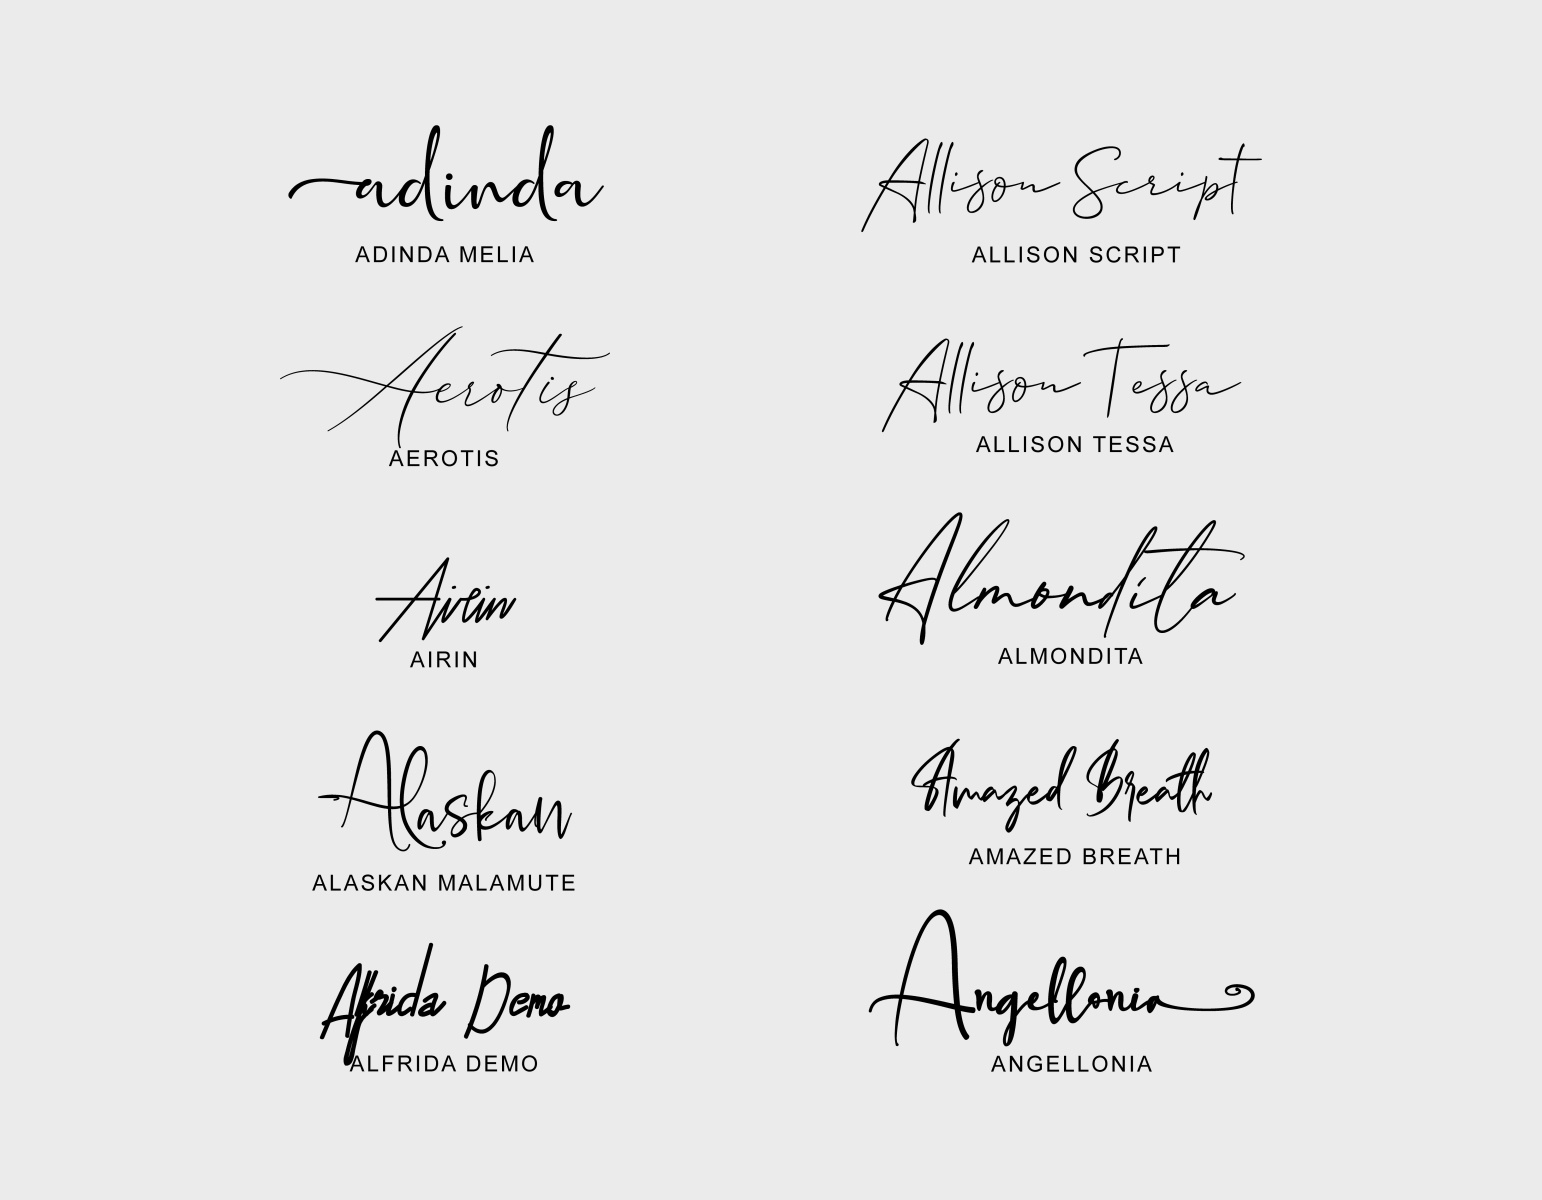 adinda
ADINDA MELIA
Aerotis
AEROTIS
Airin
AIRIN
Alaskan
ALASKAN MALAMUTE
Alfrida Demo
ALFRIDA DEMO
Allison Script
ALLISON SCRIPT
Allison Tessa
ALLISON TESSA
Almondita
ALMONDITA
Amazed Breath
AMAZED BREATH
Angellonia
ANGELLONIA